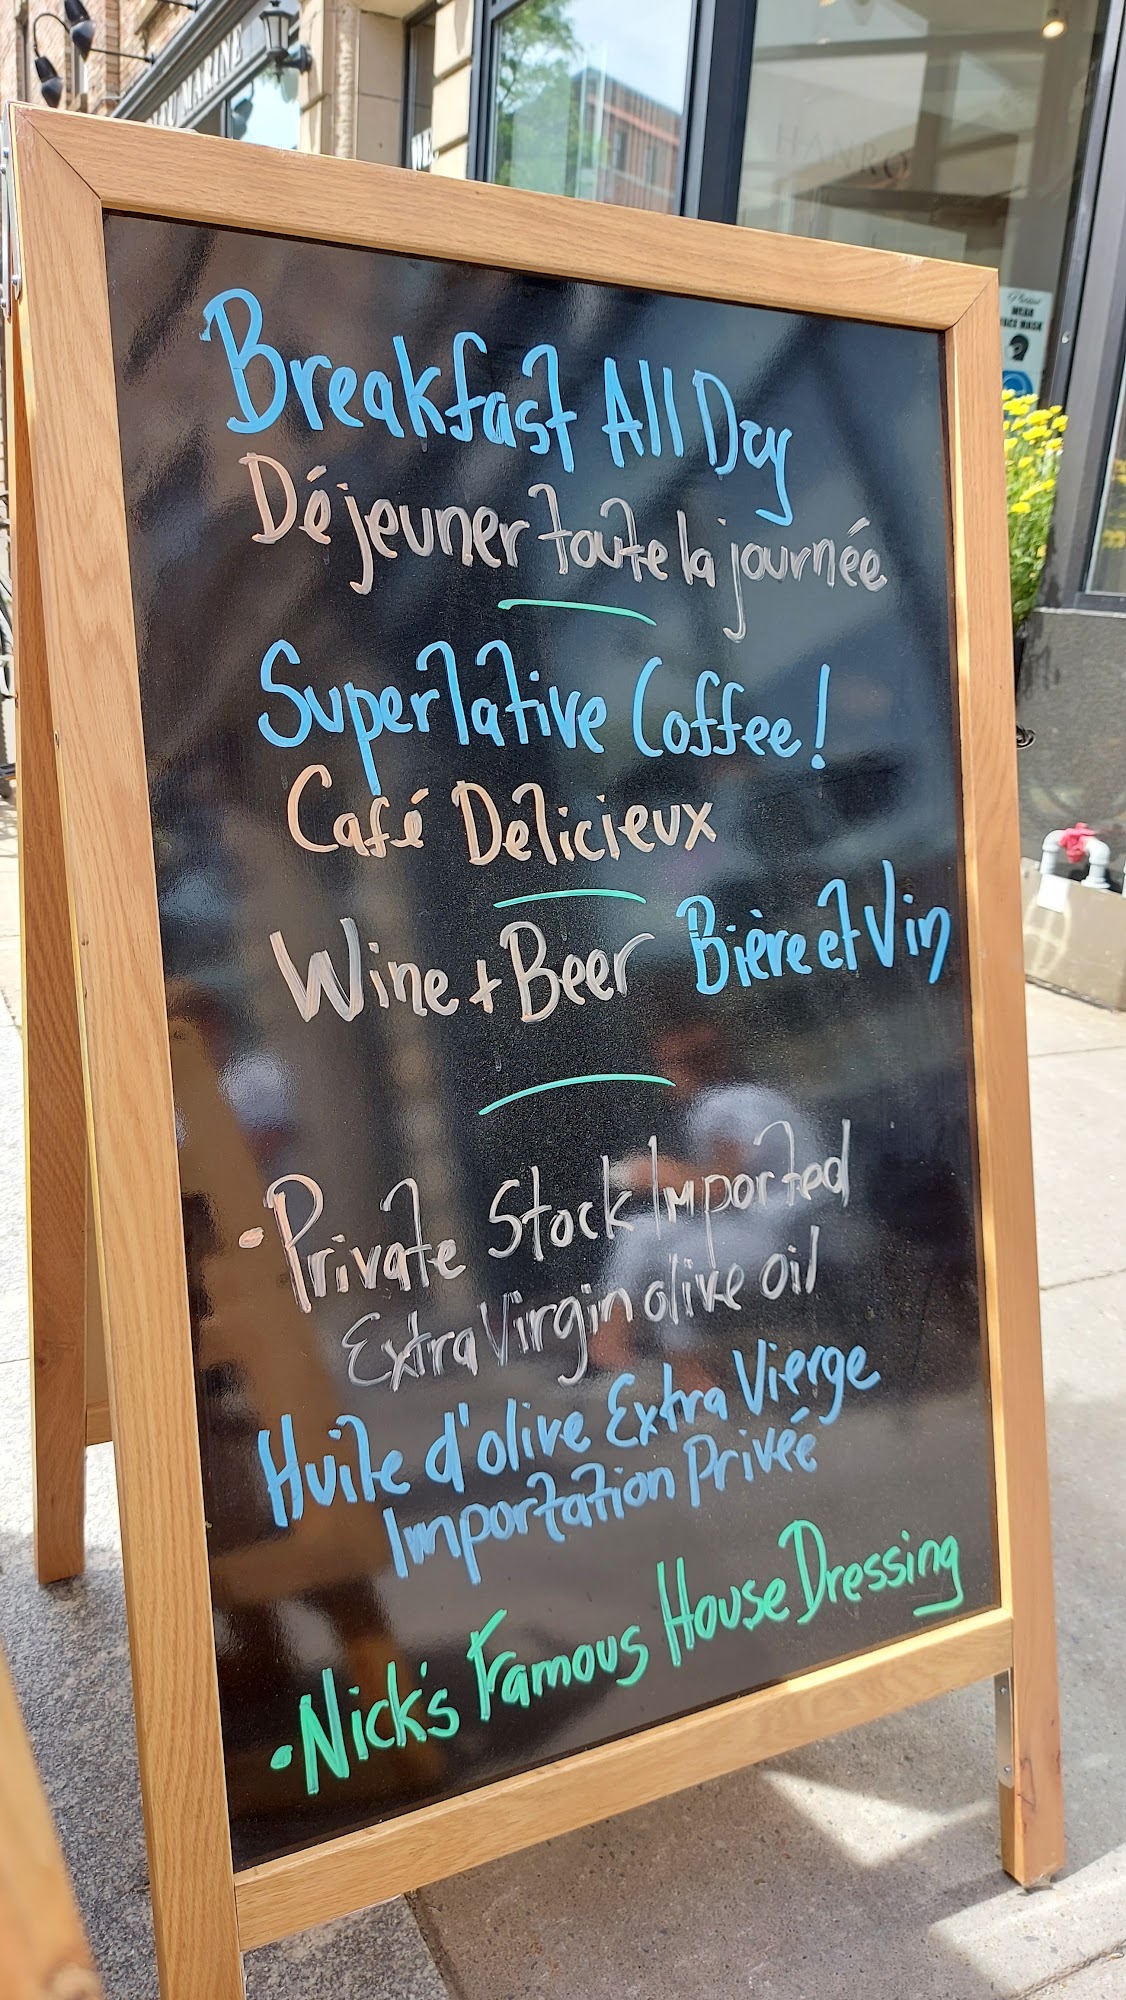 MARINE
HANRO
Please
WEAR
FACE MASK
Breakfast All Day
Déjeuner toute la journée
Superlative Coffee!
Café Delicieux
Wine + Beer Bière et Vin
• Private Stock Imported
Extra Virgin olive oil
Huile d'olive Extra Vierge
Importation Privéé
• Nick's Famous House Dressing